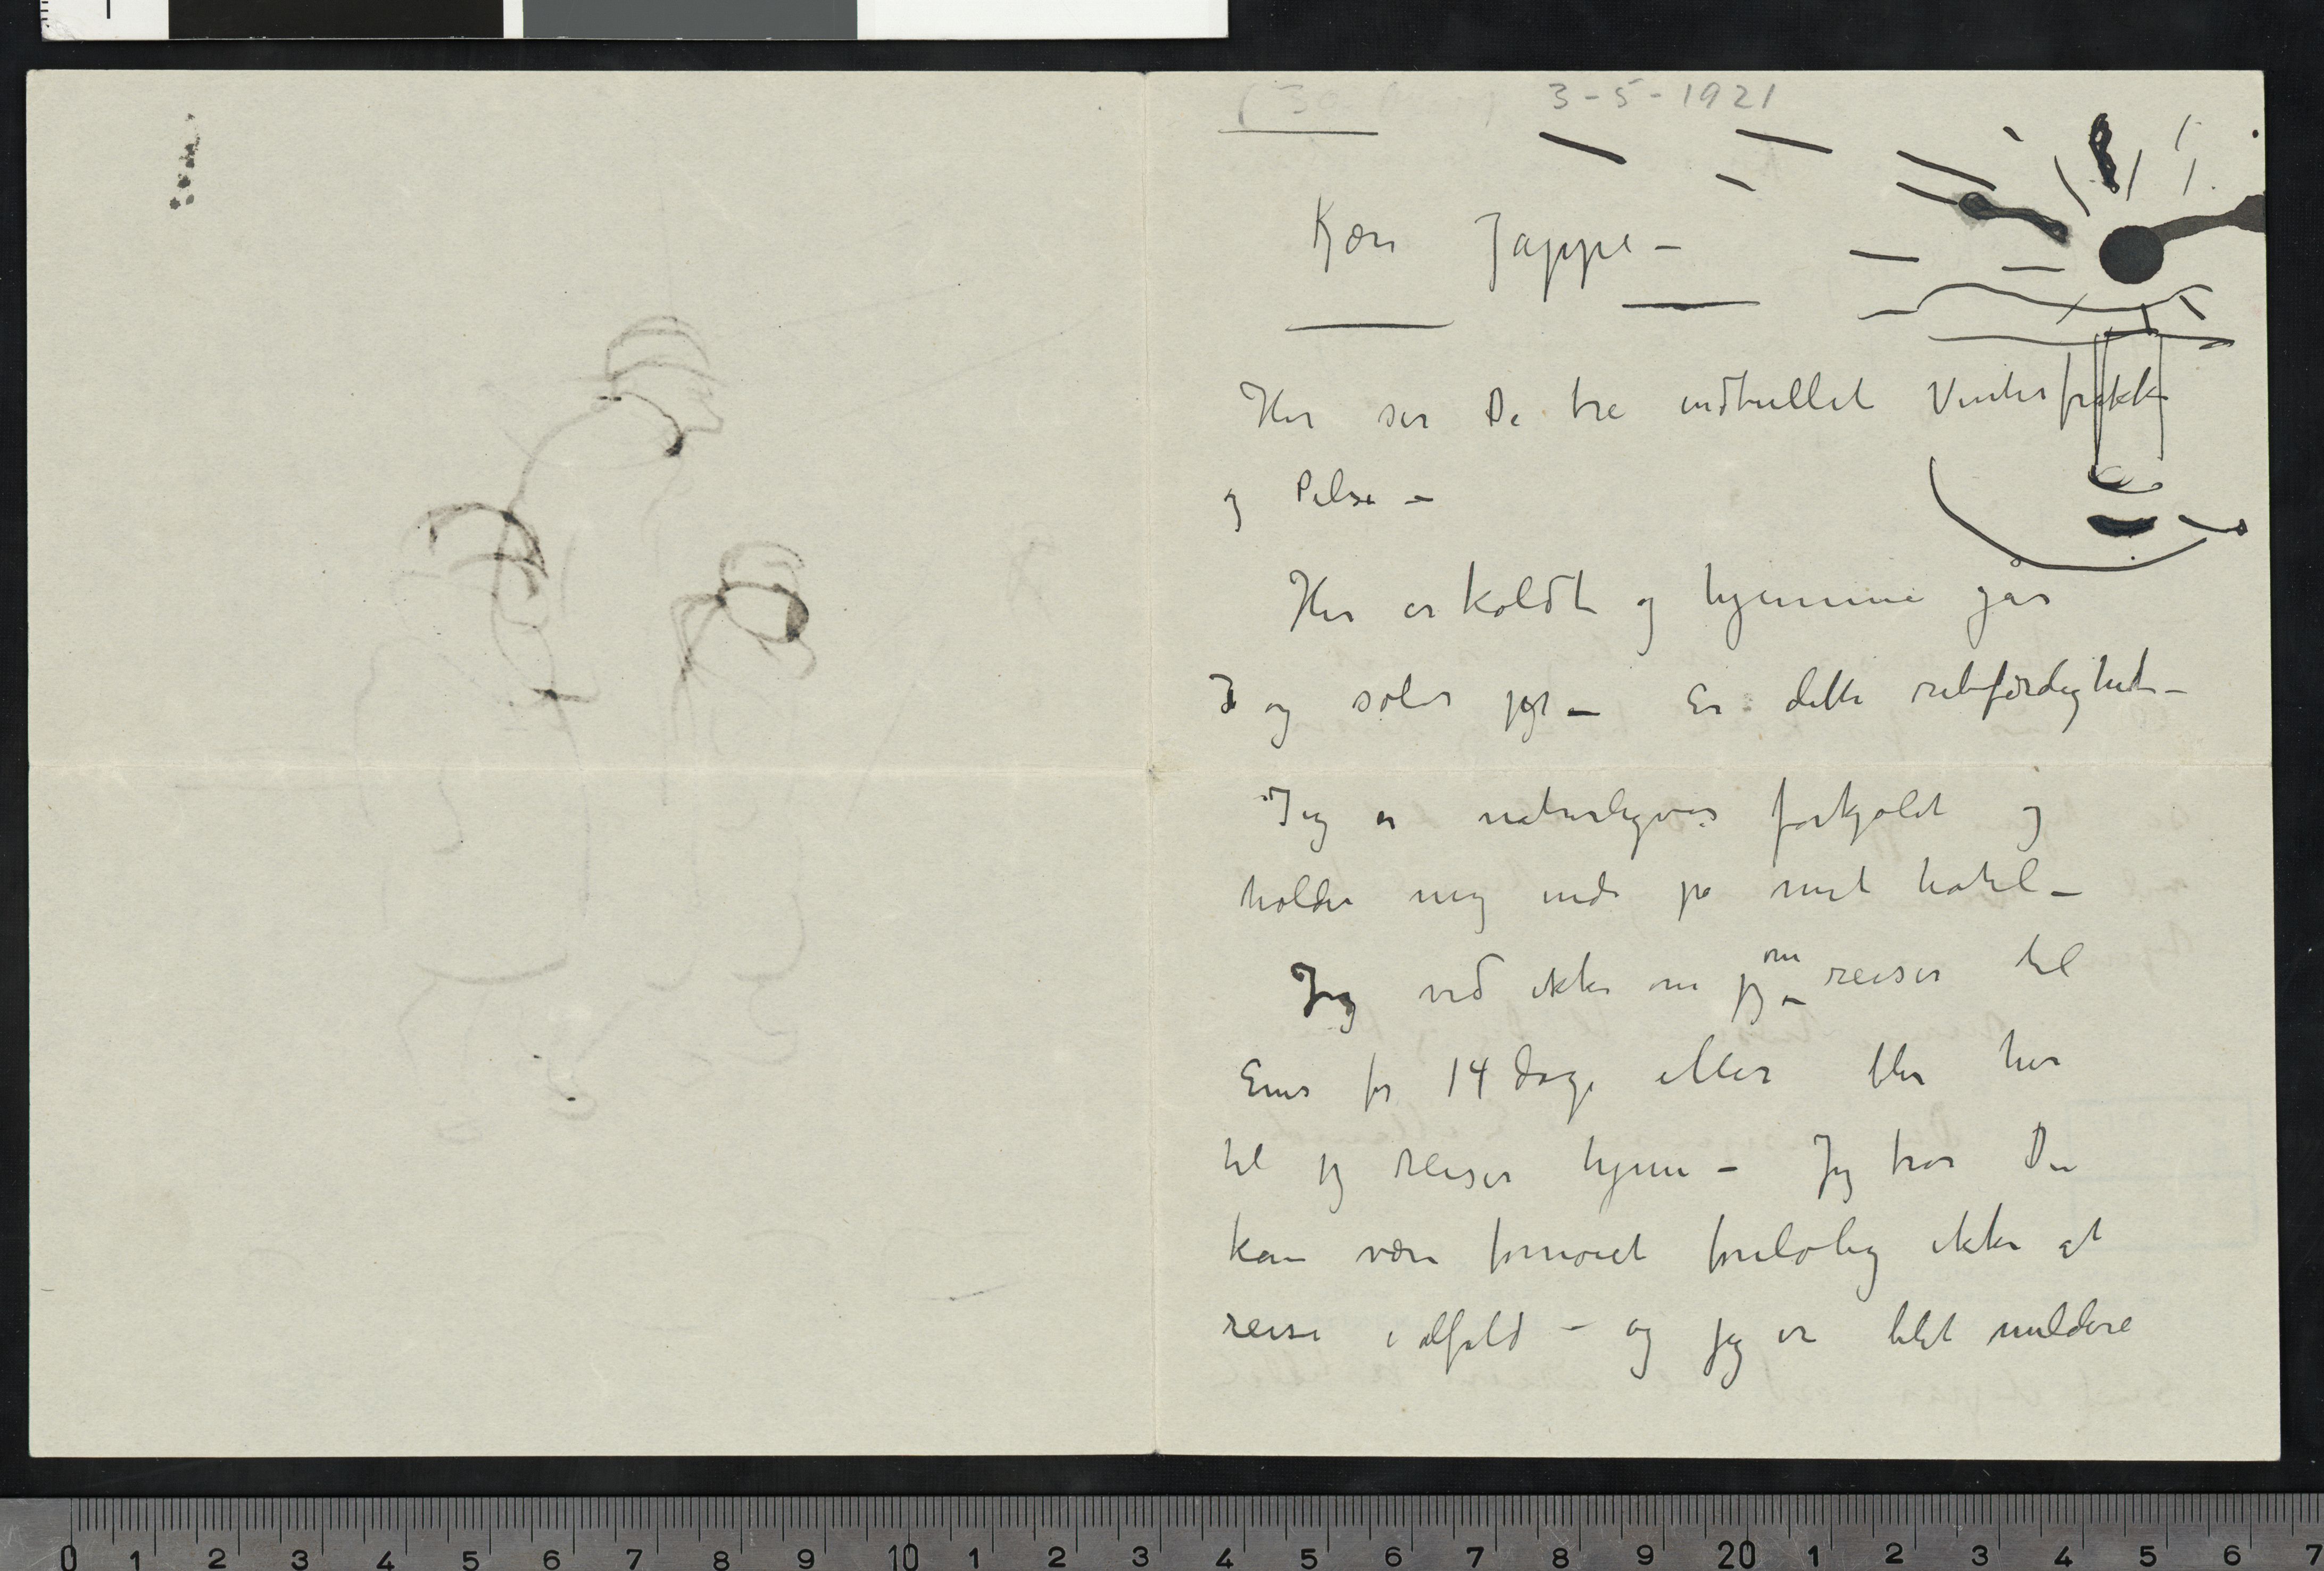 3-5-1921
Kjære Jappe –
Her ser De tre indtullet Vinterfrakk
og Pelse –
Her er koldt og hjemme går
I og soler jer – Er dette retfærdighet –
Jeg er naturligvis forkjølet og
holder mig inde på mit hotel –
Jeg ved ikke om jeg om reiser til
Ems for 14 dage eller blir her
til jeg reiser hjem – Jeg tror Du
kan være fornøiet foreløbig ikke at
reise ialfald – og jeg er blet
0 1 2 3 4 5 6 7 8 9 10 1 2 3 4 5 6 7 8 9 20 1 2 3 4 5 6 7